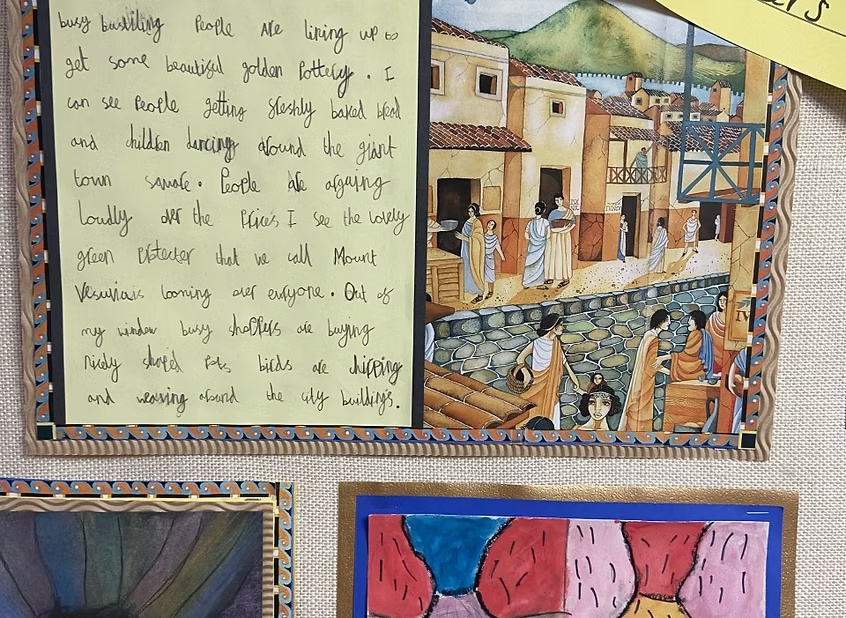 ers
busy bustiling People are lining up to
get some beautiful golden Pottery. I
can see People getting freshly baked bread
and children dancing around the giant
town square. People are arguing
loudly over the Prices I see the lovely
green Protecter that we call Mount
Vesuviais looming over everyone. Out of
my window busy shoppers are buying
nicely shaped Pots birds are chirping
and weaving around the city buildings.
IV